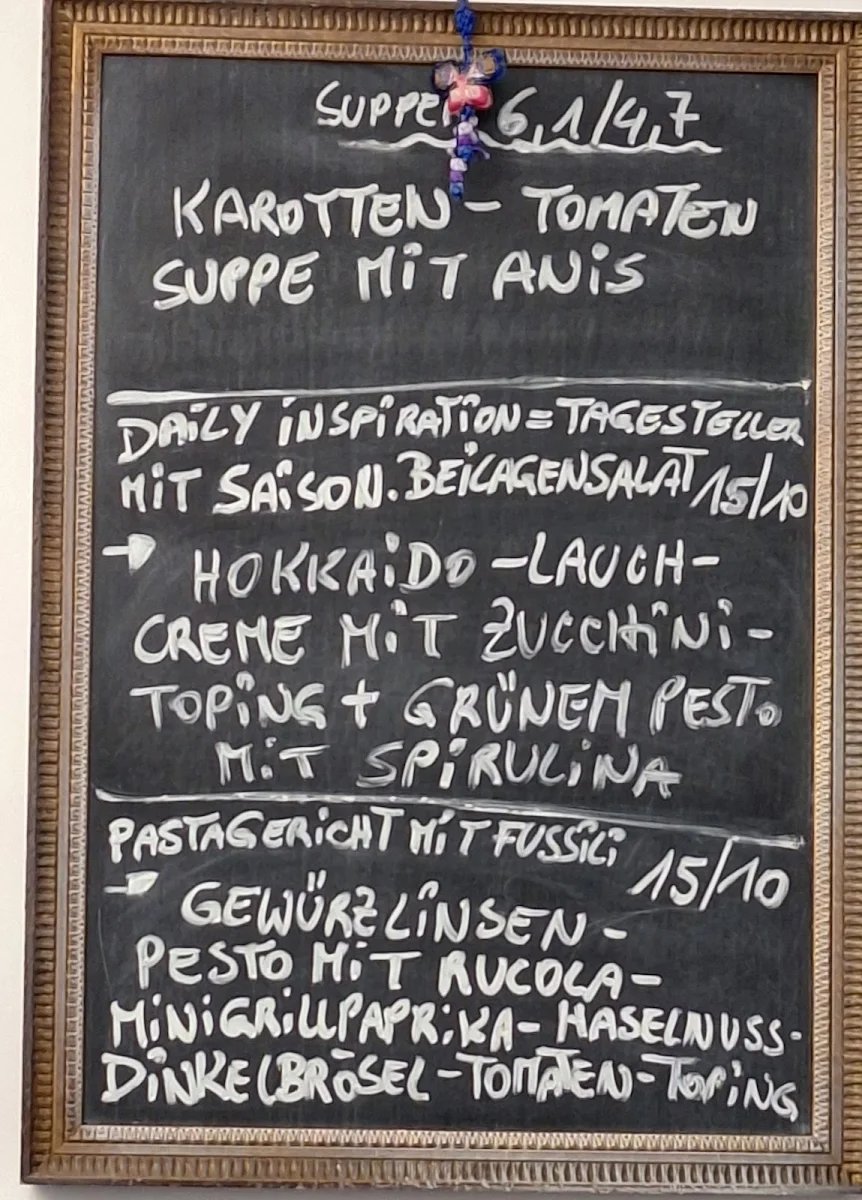 SUPPE 6,1/4,7
KAROTTEN - TOMATEN
SUPPE MiT ANiS
DAiLY iNSPiRATiON = TAGESTELLER
MiT SAiSON. BEiLAGENSALAT 15/10
→ HOKKAiDO - LAUCH -
CREME MiT ZUCCHiNi -
TOPiNG + GRÜNEM PESTO
MiT SPiRULiNA
PASTAGERiCHT MiT FUSSiLi 15/10
→ GEWÜRZLiNSEN -
PESTO MiT RUCOLA -
MiNiGRiLLPAPRiKA - HASELNUSS -
DiNKELBRÖSEL - TOMATEN - TOPiNG